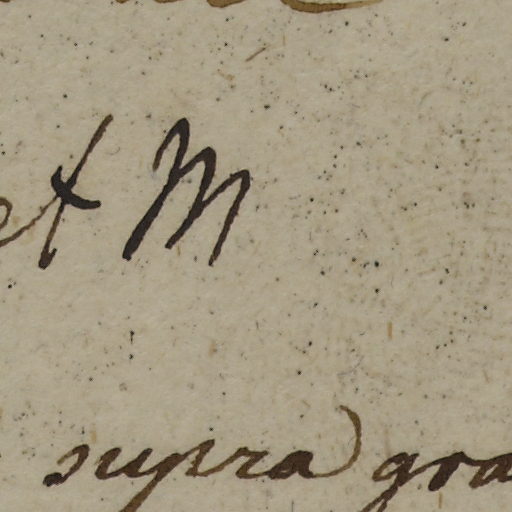 et M
supra) gra